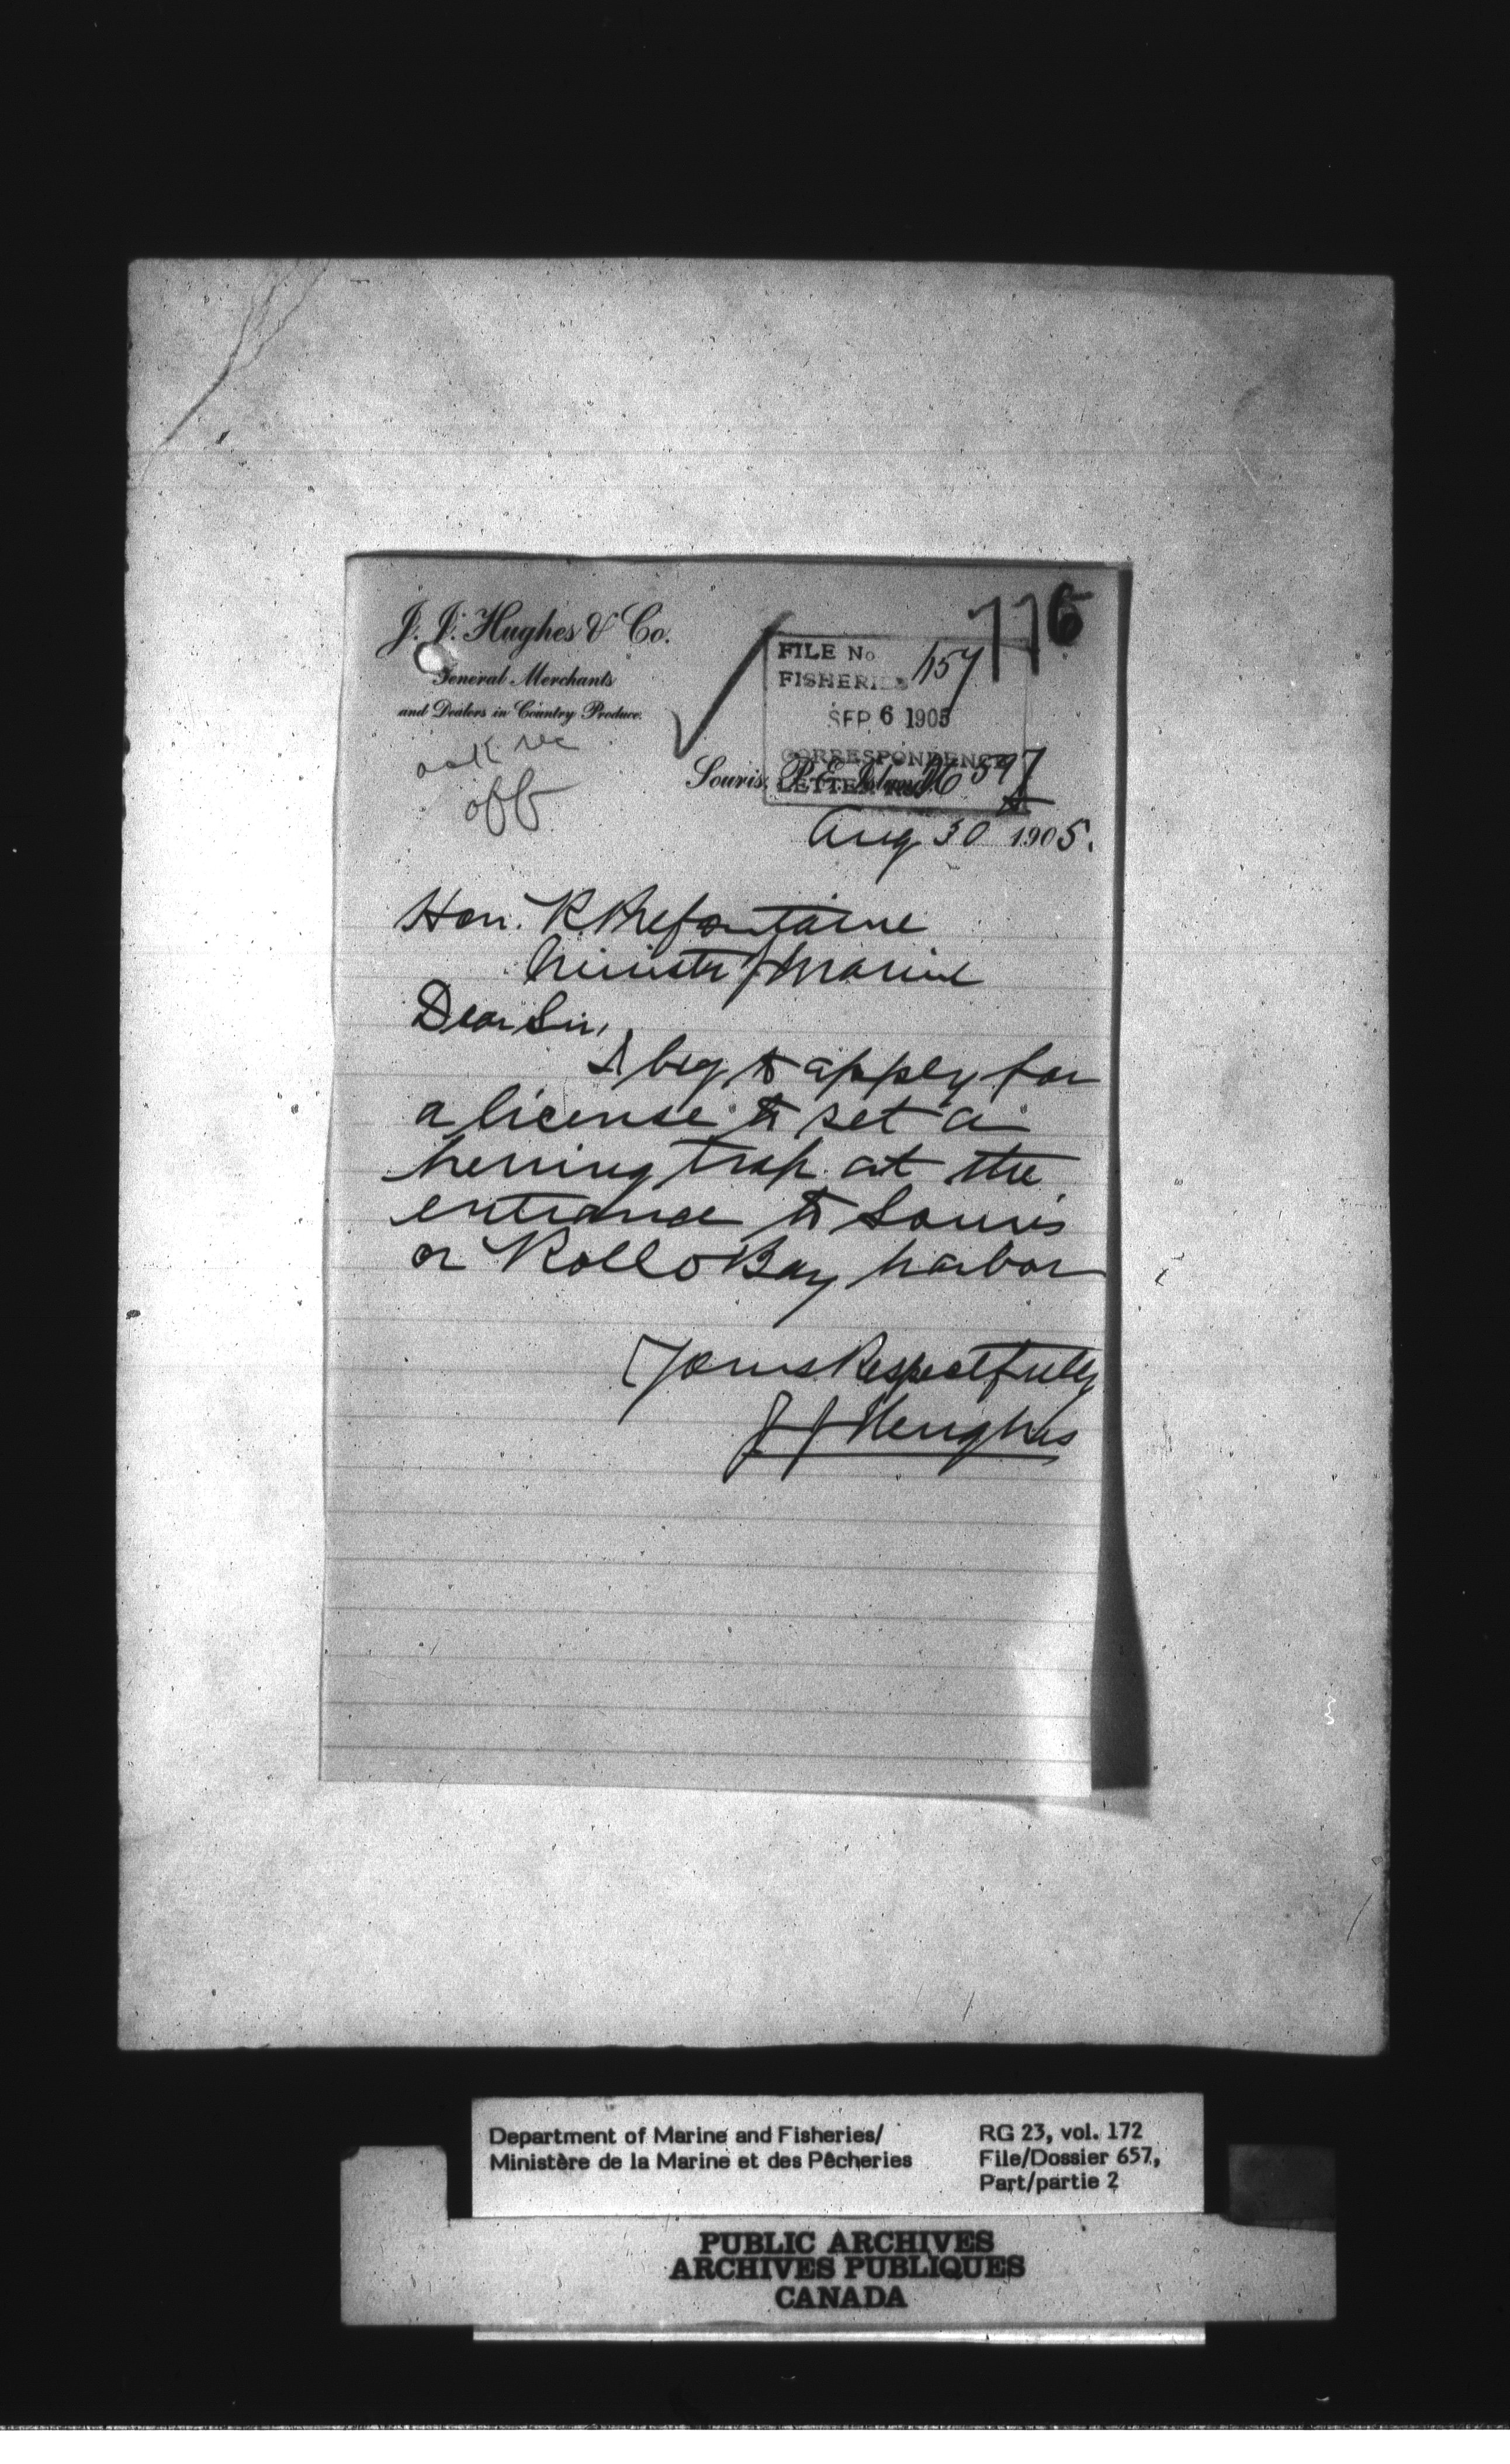 J. J. Hughes & Co.
General Merchants
and Dealers in Country Produce.
776
FILE No
FISHERIES
SEP 6 1905
CORRESPONDENCE
LETTER
597
Souris, P. E. Island
ask
off
Aug 30 1905.
Hon. R. Prefontaine
Minister of Marine
Dear Sir,
I beg to apply for
a license to set a
herring trap at the
entrance to Souris
or Rollo Bay harbor
Yours Respectfully
J J Hughes
Department of Marine and Fisheries/
Ministère de la Marine et des Pêcheries
RG 23, vol. 172
File/Dossier 657,
Part/partie 2
PUBLIC ARCHIVES
ARCHIVES PUBLIQUES
CANADA